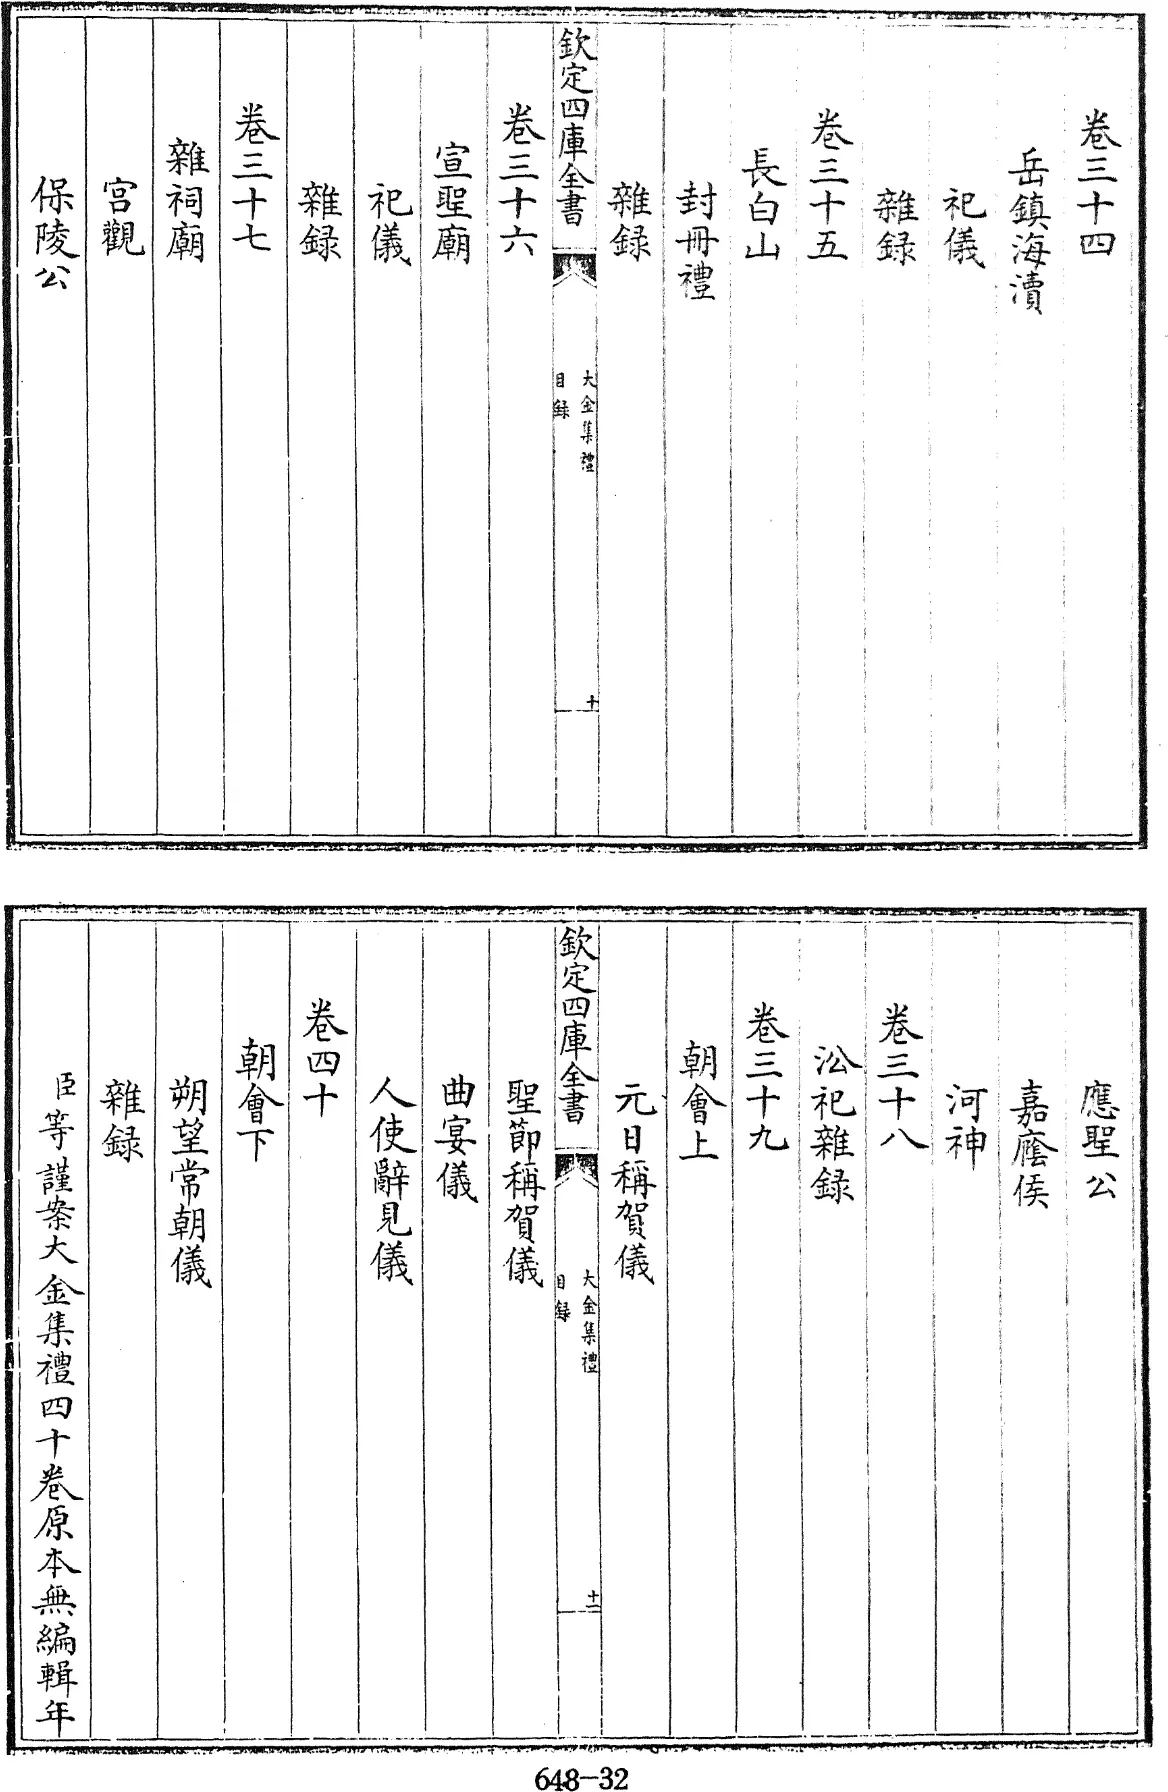 卷三十四
岳鎮海瀆
祀儀
雜録
卷三十五
長白山
封冊禮
雜録
欽定四庫全書
大金集禮
目録
十
卷三十六
宣聖廟
祀儀
雜録
卷三十七
雜祠廟
宫觀
保陵公
應聖公
嘉廕侯
河神
卷三十八
沿祀雜録
卷三十九
朝會上
元日稱賀儀
欽定四庫全書
大金集禮
目録
十一
聖節稱賀儀
曲宴儀
人使辭見儀
卷四十
朝會下
朔望常朝儀
雜録
臣等謹案大金集禮四十卷原本無編輯年
648-32